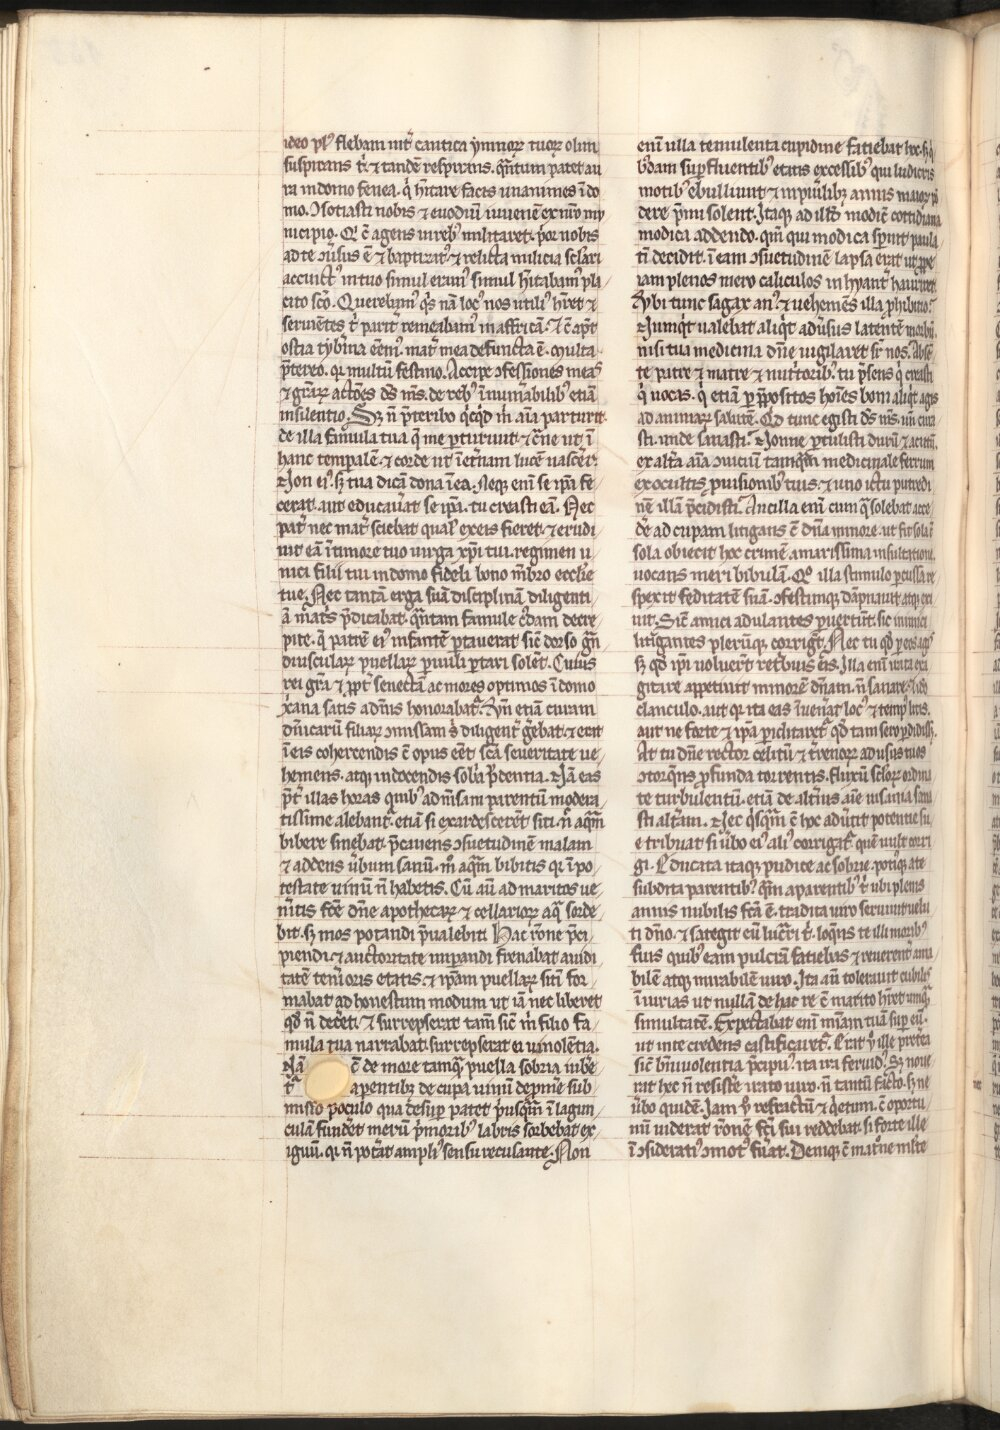 ideo pl᷒ flebam int̄ cantica ẏmnoꝝ tuoꝝ olim
suspirans t᷑ ⁊ tandē respirans. qn̄tum patet au
ra in domo fenea. q̇ hītare facis unanimes ī do
mo. ꝯsotiasti nobis ⁊ euodiū iuuenē ex nr̄o mu
nicipio. Q᷑ ē agens in reb᷒ militaret. p̓or nobis
ad te ꝯuersus ē ⁊ baptizat᷒ ⁊ relicta milicia scl̓ari
accinct᷒ in tuo simul eram᷒ simul hītabam᷒ pla
cito sc̄o. Querebam᷒ qͥs nā loc᷒ nos utili᷒ hr̄et ⁊
seruiētes t᷑ parit̄ remeabam᷒ in affricā. ⁊ c̄ aput
ostia tyb̓ina eēm᷒. mat̄ mea defuncta ē. Multa
p̄tereo. qꝛ multū festino. Accipe ꝯfessiones meas
⁊ gr̄aꝝ actōes ds̄ ms̄. de reb᷒ īnum̄abilib᷒ etiā
in silentio. Sꝫ n̄ p̄teribo qͥcqͥd m̓ aīa parturit
de illa famula tua q̄ me p̄turiuit. ⁊ carne ut ī
hanc temporalē. ⁊ corde ut ī et̄nam lucē nascer̄.
Non ei᷒. sꝫ tua dicā dona ī ea. Neqꝫ enī se ip̄a fe
cerat. aut educau̓at se ip̄a. tu creasti eā. Nec
pat̄ nec mat̄ sciebat qual̓ ex eis fieret. ⁊ erudi
uit eā ī timore tuo uirga xp̄i tui. regimen u
nici filii tui in domo fideli bono mēbro eccl̓ie
tue. Nec tantā erga suā disciplinā diligenti
ā mat̓s p̄dicabat. qn̄tam famule cͥdam decre
pite. q̄ patrē ei᷒ infantē portauerat sic̄ dorso grn̄
diuscularꝝ puellarꝝ paruuli portari solēt. Cuius
rei gr̄a ⁊ ꝓpt̄ senectā ac mores optimos ī domo
xp̄iana satis a dn̄is honorabat᷑. Vn̄ etiā curam
dn̄icarū filiarꝝ ꝯmissam s᷑ diligent̄ g̓ebat. ⁊ erat
ī eis cohercendis c̄ opus eēt scā seueritate ue
hemens. atqꝫ in docendis sob̓a p̄dentia. Nā eas
p̄t̄ illas horas quib᷒ ad mīsam parentum modera
tissime alebant᷑. etiā si exardescerēt siti. n̄ aqͣm
bibere sinebat. p̄cauens ꝯsuetudinē malam
⁊ addens u̓bum sanū. m̊ aqͣm bibitis qꝛ ī po
testate uinū n̄ habetis. Cū aū ad maritos ue
n̓itis fc̄e dn̄e apothecarꝝ ⁊ cellariorꝝ aqͣ sorde
bit. sꝫ mos potandi p̄ualebit. Hac rōne p̄ci
piendi ⁊ auctoritate imp̱andi frenabat auidi
tatē ten̓ioris etatis. ⁊ ip̄am puellarꝝ sitī for
mabat ad honestum modum ut iā nec liberet
qd̓ n̄ deceret. ⁊ surrepserat tam̄ sic̄ m̓ filio fa
mula tua narrabat. surrepserat ei uinolētia.
Nā c̄ de more tamqͣ puella sobria iube
t᷑ a parentib᷒ de cupa uinū depm̄e sub
misso poculo qua desup̱ patet p̓usqͣm ī lagun
culā fundēt merū p̓morib᷒ labris sorbebat ex
iguū. qꝛ n̄ pot̄at ampli᷒ sensu recusante. Non
enī ulla temulenta cupidine fatiebat hoc. sꝫ q̓
b᷒dam sup̱fluentib᷒ etatis excessib᷒ qui ludicris
motib᷒ ebulliunt. ⁊ in pu̓ilib᷒ annis maiorꝝ pō
dere p̓mi solent. Itaqꝫ ad illd̓ modicū cottidiana
modica addendo. qm̄ qui modica sp̱nit paula
tī decidit. ī eam ꝯsuetudinē lapsa erat ut ꝓpe
iam plenos mero caliculos inhyant̄ hauriret.
Vbi tunc sagax an᷒ ⁊ uehemēs illa ꝓhibitio?
Numqͥt ualebat aliqͥt adu̓sus latentē morbū
nisi tua medicina dn̄e uigilaret sr̄ nos. Absē
te patre ⁊ matre ⁊ nut̓torib᷒. tu p̄sens q̓ creasti
q̓ uocas. q̓ etiā per p̄positos hoīes boni aliqͥt agis
ad animarꝝ salutē. Qͥd tunc egisti ds̄ ms̄. un̄ cura
sti. unde sanasti? Nonne ꝓtulisti durū ⁊ acutū
ex alt̄a aīa ꝯuiciū tamqͣm medicinale ferrum
ex occultis ꝓuisionib᷒ tuis. ⁊ uno ictu putredi
nē illā p̄cidisti? Ancilla enī cum qͣ solebat acce
d̓e ad cupam litigans c̄ dn̄a minore. ut fit sola c̄
sola obiecit hoc crimē amarissima insultatione
uocans meri bibulā. Qͦ illa stimulo ꝑcussa re
spexit feditatē suā. ꝯfestimqꝫ dāpnauit atqꝫ exi
uit. Sic̄ amici adulantes ꝑuertunt. sic inimici
litigantes plerūqꝫ corrigūt. Nec tu qd̓ ꝑ eos agis
sꝫ qd̓ ip̄i uoluert̄ ret̓buis eis. Illa enī irata exa
gitare appetiuit minorē dn̄am. n̄ sanare. ideo
clanculo. aut qꝛ ita eas īuen̓at loc᷒ ⁊ temp᷒ litis.
aut ne forte ⁊ ip̄a ꝑiclitaret᷑ qd̓ tam sero ꝓdidisset.
At tu dn̄e rector celitū ⁊ t̓renorꝝ ad usus tuos
ꝯtorqͣns ꝓfunda torrentis. fluxū scl̓orꝝ ordina
te turbulentū. etiā de alt̓ius aīe insania sana
sti alt̓am. Nec qͥsqͣm c̄ hoc adu̓tit potentie su
e tribuat si u̓bo ei᷒ ali᷒ corrigat᷑ quē uult corri
gi. Educata itaqꝫ pudice ac sobrie. potiusqꝫ a te
subdita parentib᷒ qͣm a parentib᷒ t᷑. ubi plenis
annis nubilis fc̄a ē. tradita uiro seruiuit uelu
ti dn̄o. ⁊ sategit eū luc̓ri t᷑. loqͣns te illi morib᷒
suis quib᷒ eam pulcrā fatiebas ⁊ reuerent̄ ama
bilē atqꝫ mirabilē uiro. Ita aū tolerauit cubilis
īiurias ut nullā de hac re c̄ marito hr̄et umqͣ
simultatē. Expectabat enī mīam tuā sup̱ eū.
ut in te credens castificaret᷑. Erat u̓ ille p̄terea
sic̄ bn̄iuolentia p̄cipu᷒. ita ira feruid᷒. Sꝫ noue
rat hec n̄ resist̓e irato uiro. n̄ tantū fc̄o. sꝫ ne
u̓bo quidē. Iam u̓ refractū ⁊ qͥetum. c̄ oportu
nū uiderat rōnē fc̄i sui reddebat. si forte ille
īꝯsiderati᷒ ꝯmot᷒ fu̓at. Deniqꝫ c̄ mat̓ne ml̓te